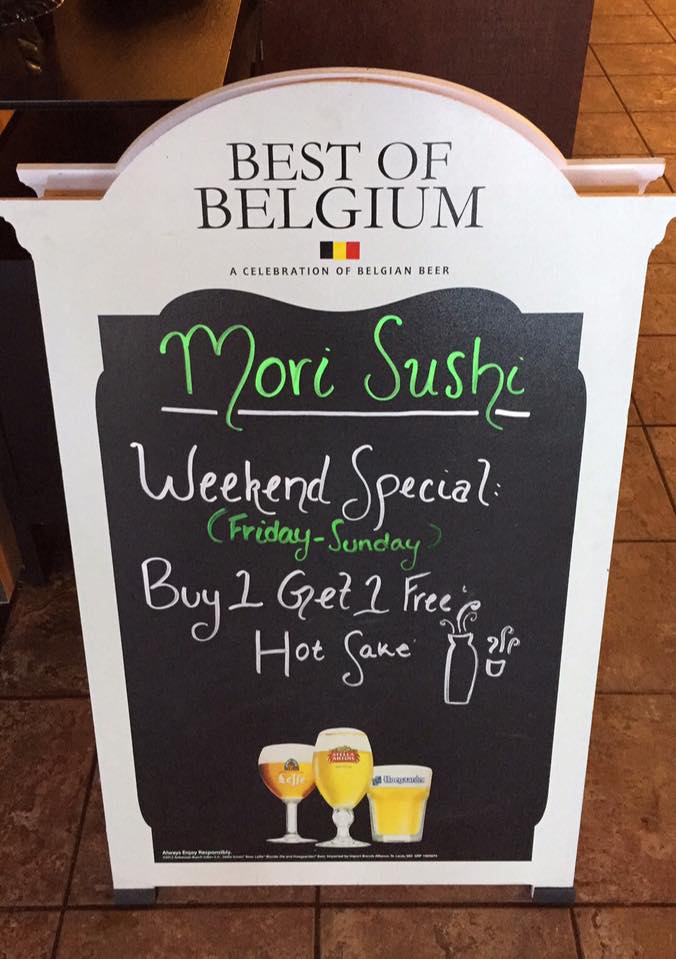 BEST OF
BELGIUM
A CELEBRATION OF BELGIAN BEER
Mori Sushi
Weekend Special:
(Friday-Sunday)
Buy 1 Get 1 Free
Hot Sake
Leffe
STELLA
ARTOIS
Hoegaarden
Always Enjoy Responsibly.